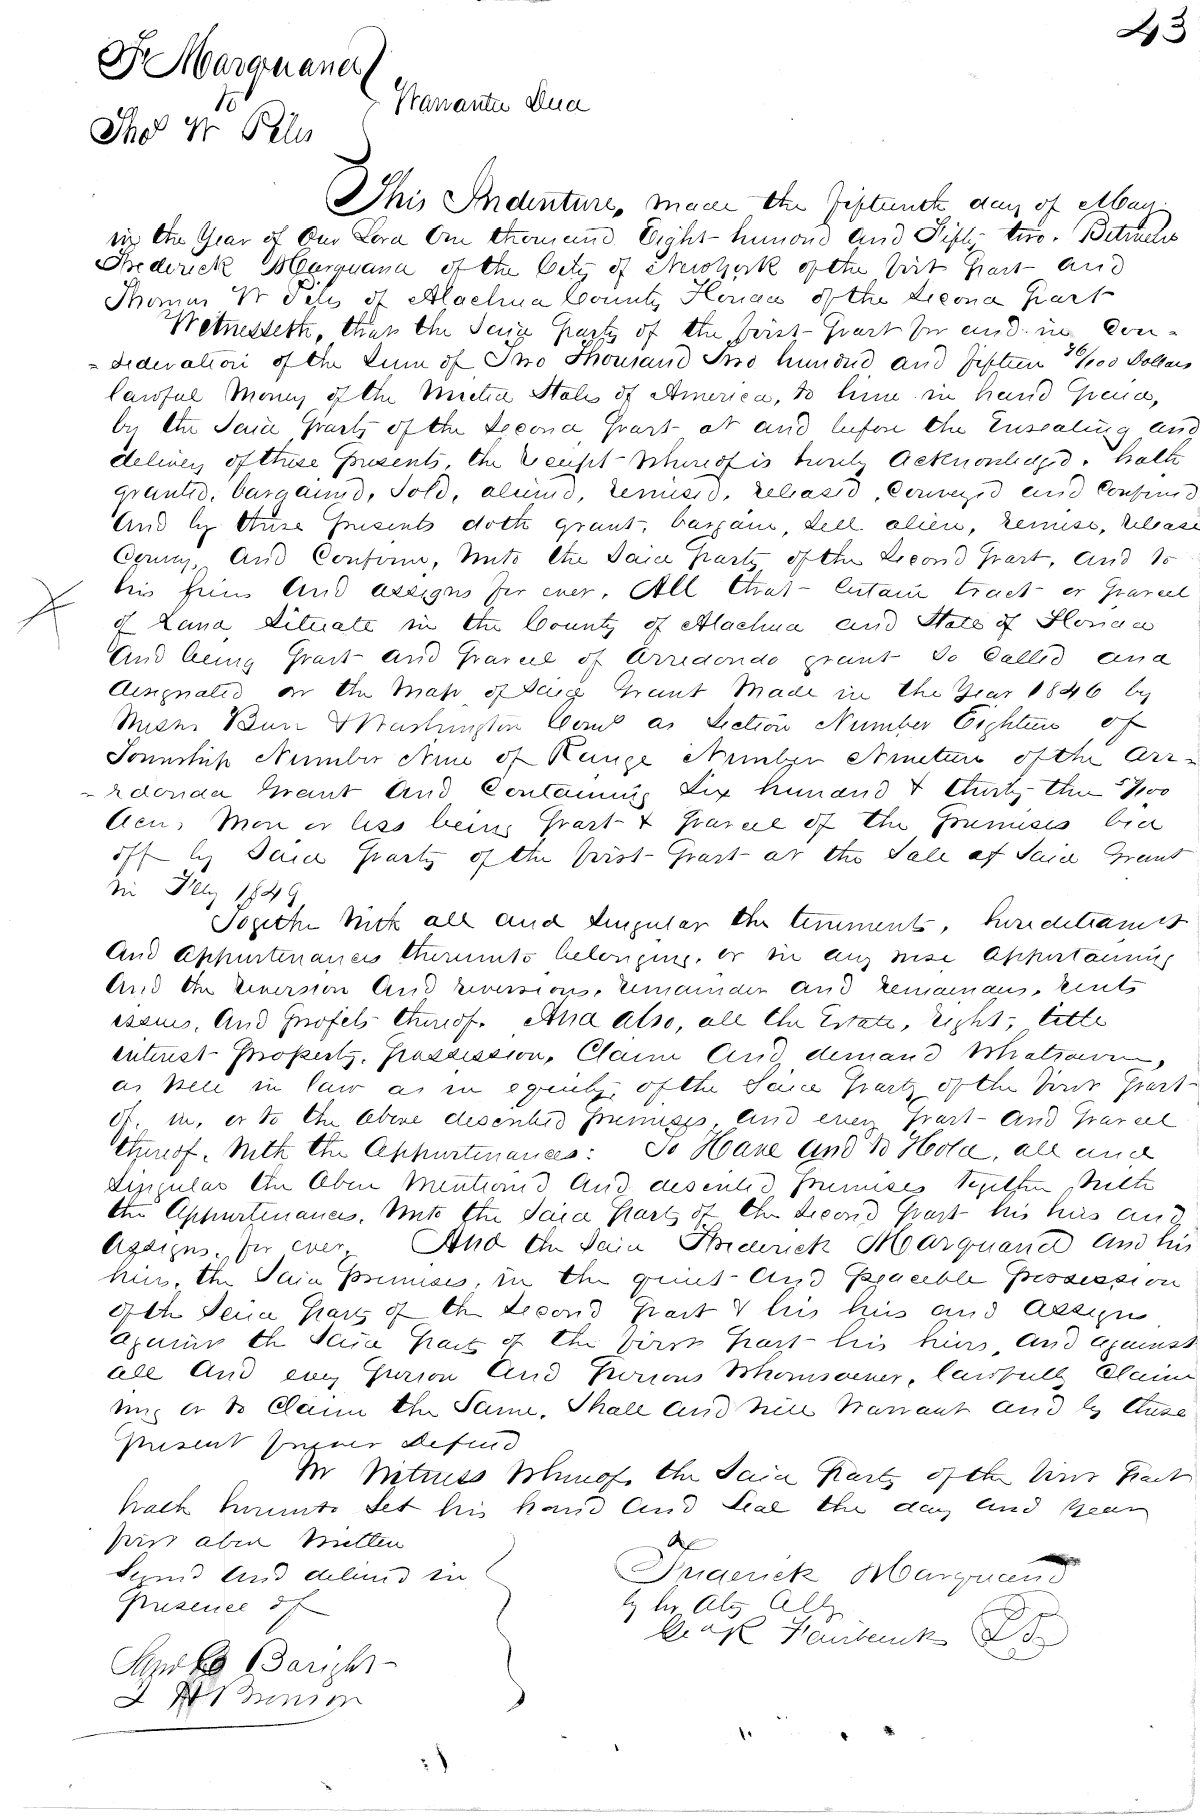 43
F. Marquand
to
Warrantee Deed
Thos W Piles
This Indenture, made the fifteenth day of May
in the Year of Our Lord One thousand Eight hundred and Fifty two. Between
Frederick Marquand of the City of New York of the first Part and
Thomas W Piles of Alachua County Florida of the Second Part
Witnesseth, that the Said Party of the first Part for and in Con-
-sideration of the Sum of Two Thousand Two hundred and fifteen 76/100 Dollars
lawful Money of the United States of America, to him in hand Paid,
by the Said Party of the Second Part at and before the Ensealing and
delivery of these Presents, the receipt Whereof is hereby Acknowledged. hath
granted, bargained, Sold, aliened, remised, released, Conveyed and Confirmed
And by these Presents doth grant, bargain, Sell alien, remise, release
Convey, And Confirm, Unto the Said Party of the Second Part, and to
his heirs And assigns for ever, All that Certain tract or Parcel
of Land Situate in the County of Alachua and State of Florida
And being Part and Parcel of Arredondo grant So Called and
designated on the Map of Said Grant Made in the Year 1846 by
Messrs Burr & Washington Coms as Section Number Eighteen of
Township Number Nine of Range Number Nineteen of the Arr-
-edonda Grant And Containing Six hundred & thirty three 57/100
Acres More or less being Part & Parcel of the Premises bid
off by Said Party of the first Part at the Sale of Said Grant
in Feby 1849
Together With all and Singular the tenements, heredetiaments
And Appurtenances thereunto belonging, or in any wise Appertaining
And the reversion And reversions, remainder and remainders, rents
issues, And Profets thereof. And also, all the Estate, right, title
interest Property, Possession, Claim And demand Whatsoever,
as Well in law as in equity, of the Said Party of the first Part
of, in, or to the above described Premises, and every Part and Parcel
thereof, With the Appurtenances: To Have and to Hold, all and
Singular the Above Mentioned And described Premises together With
the Appurtenances, Unto the Said Party of the Second Part his heirs and
Assigns, for ever, And the Said Frederick Marquand and his
heirs, the Said Premises, in the quiet And Peaceble Possession
of the Said Party of the Second Part & his heirs and Assigns
against the Said Party of the first Part his heirs, and against
all And every Person And Persons Whomsoever, lawfully Claim
ing or to Claim the Same, Shall and Will Warrant and by these
Present forever Defend
In Witness Whereof, the Said Party of the first Part
hath hereunto Set his hand And Seal the day and Year
first above Written
Signed And delivered in
Presence of
Frederick Marquand
by his Aty
Geo R Fairbanks
Baright
Bronson